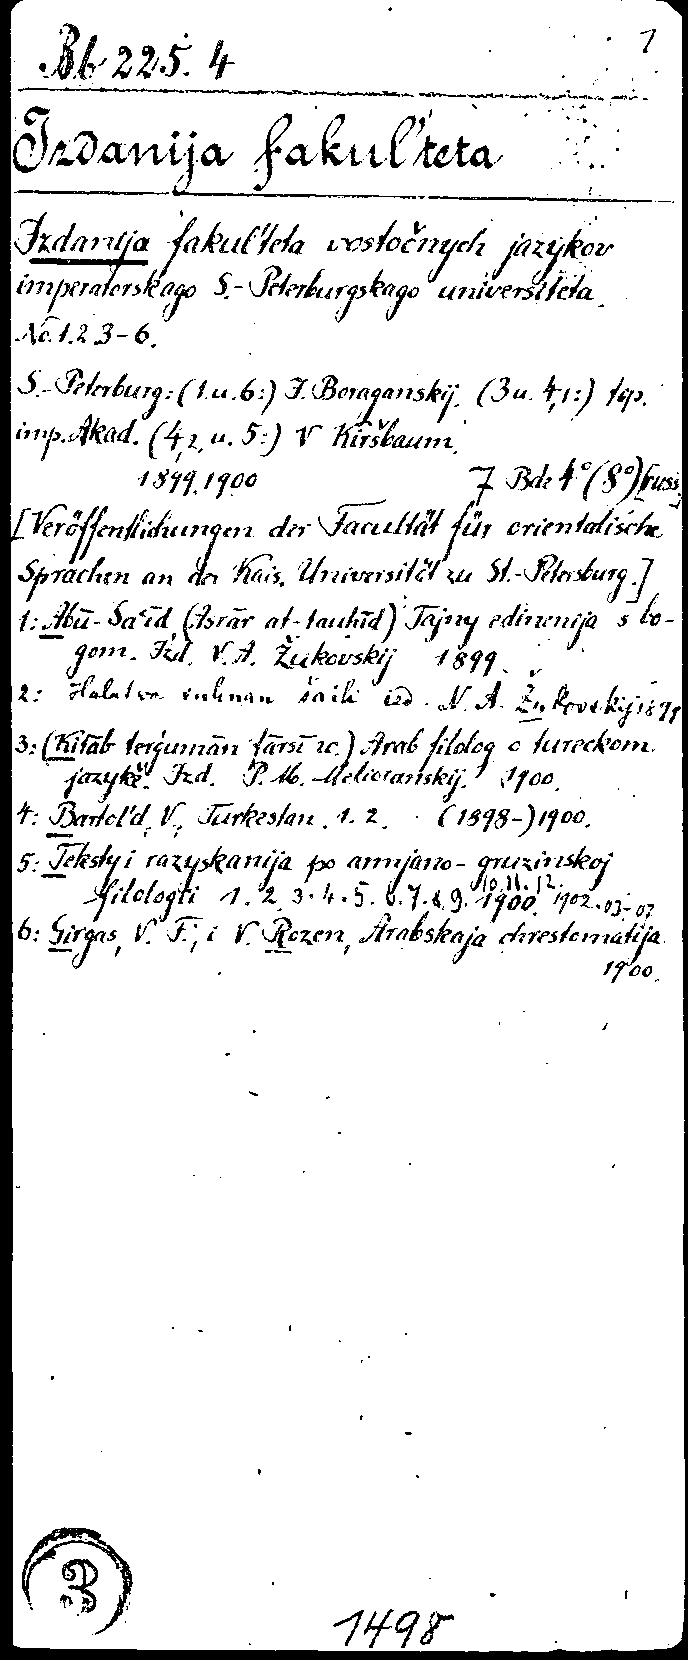 Bb 225. 4
1
Izdanija fakul'teta
Izdanija fakul'teta vostočnych jazykov
imperatorskago S.-Peterburgskago universiteta.
No. 1. 2. 3-6.
S.-Peterburg: (1. u. 6:) I. Boraganskij. (3 u. 4,1:) tip.
imp. Akad. (4,2, u. 5:) V Kiršbaum.
1899. 1900 7 Bde 4° (8°) [russ.]
[Veröffentlichungen der Facultät für orientalische
Sprachen an der Kais. Universität zu St.-Petersburg.]
1: Abū-Saʿīd, (Asrār at-tauhīd) Tajny edinenija s bo-
gom. Izd. V. A. Žukovskij 1899.
2: izd. N. A. Žukovskij 1899
3: (Kitāb terǵumān fārsī ꝛc.) Arab filolog o tureckom
jazykě. Izd. P. M. Melioranskij. 1900.
4: Bartol'd, V., Turkestan. 1. 2. (1898-) 1900.
5: Teksty i razyskanija po armjano-gruzinskoj
filologii 1. 2. 3. 4. 5. 6. 7. 8. 9. 10. 11. 12. 1900. 1902. 03-07
6: Girgas, V. F., i V. Rozen, Arabskaja chrestomatija.
1900.
3
1498